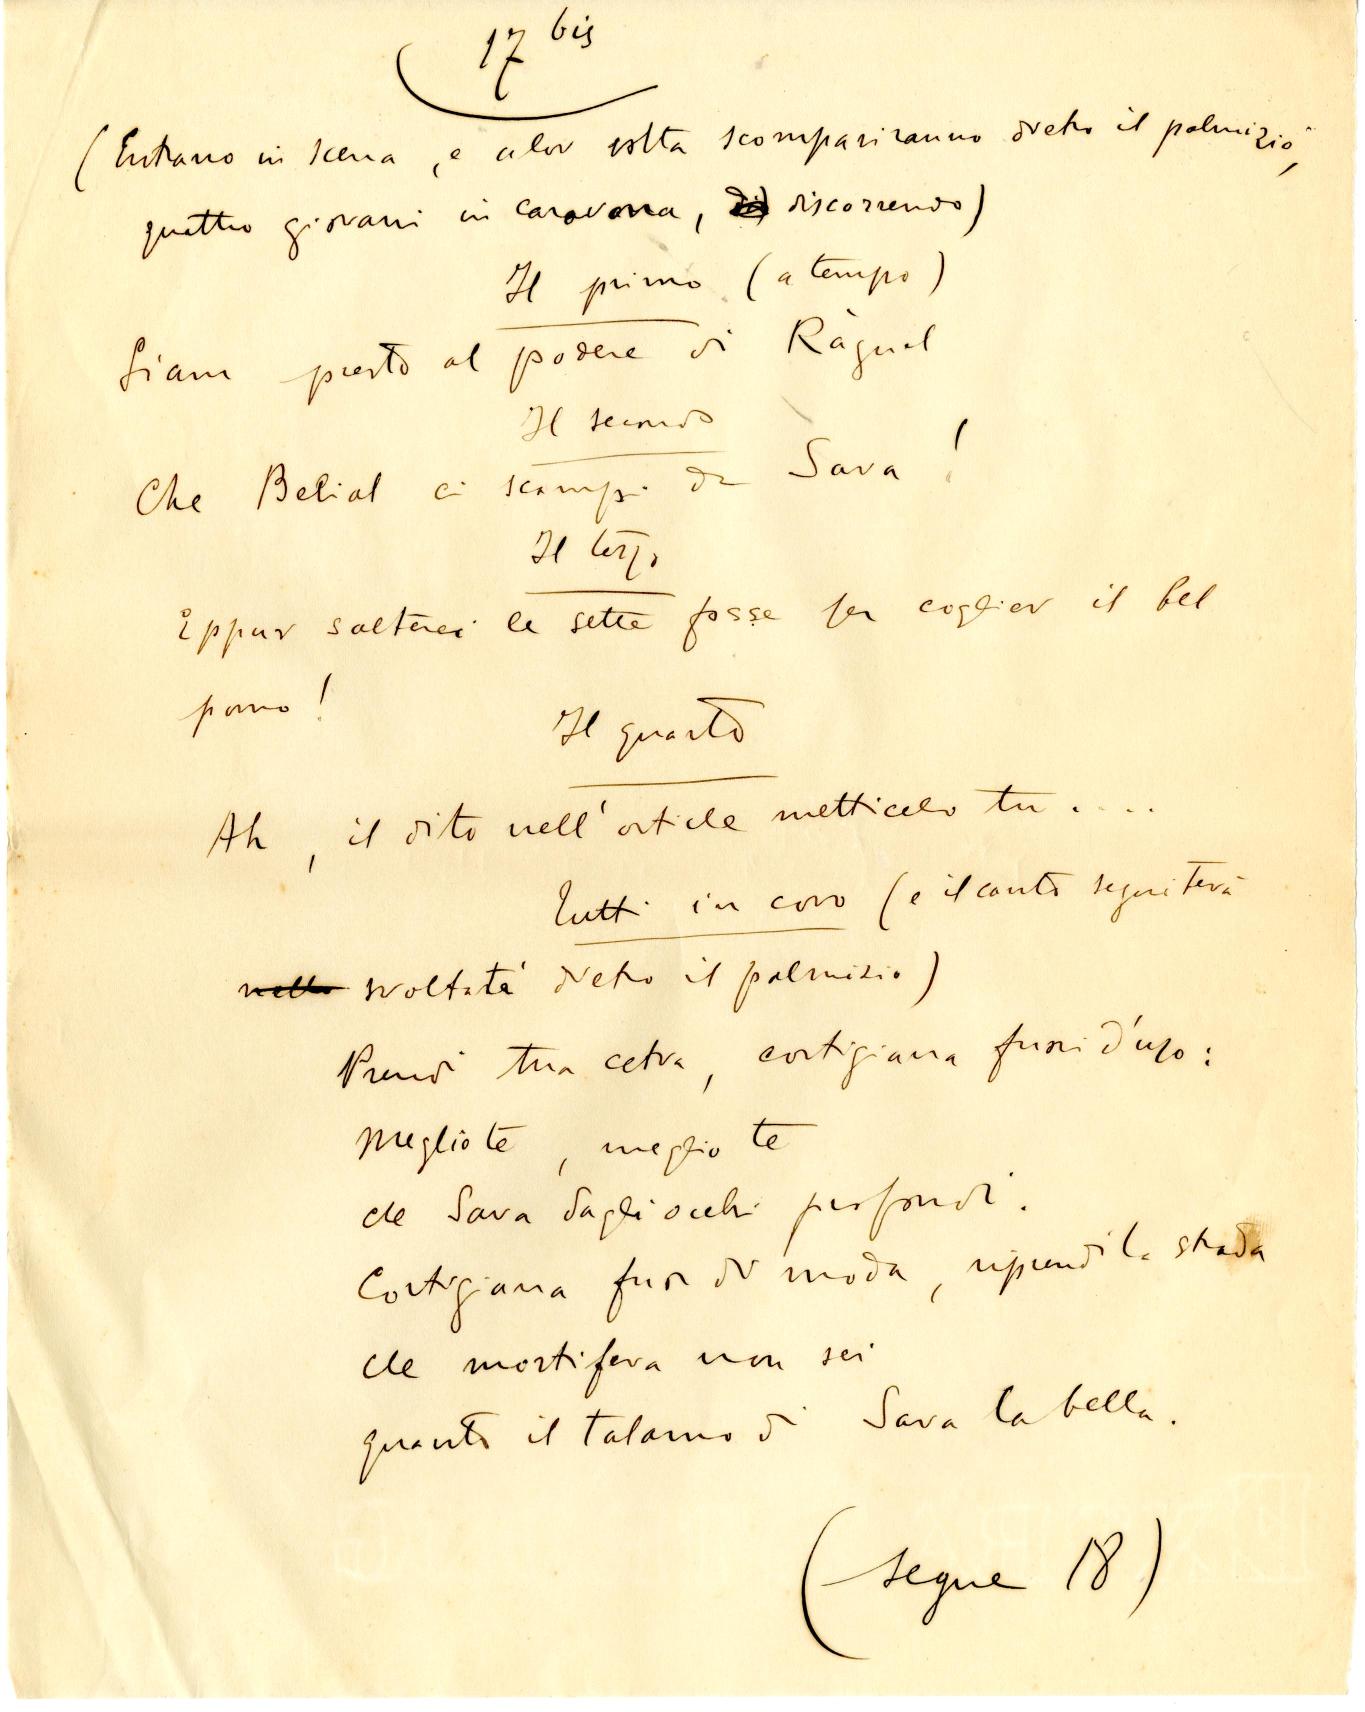 17 bis
(Entrano in scena, e a lor volta scompariranno dietro il palmizio,
quattro giovani in carovana, discorrendo)
Il primo (a tempo)
Siam presto al podere di Ràguel
Il secondo
Che Belial ci scampi da Sara!
Il terzo
Eppur salterei le sette fosse per coglier il bel
pomo!
Il quarto
Ah, il dito nell'orticle metticelo tu....
Tutti in coro (e il canto seguiterà
nella svoltata dietro il palmizio)
Prendi tua cetra, cortigiana fuori d'uso:
meglio te, meglio te
che Sara dagli occhi profondi.
Cortigiana fuor di moda, riprendi la strada
che mortifera non sei
quanto il talamo di Sara la bella.
(segue 18)